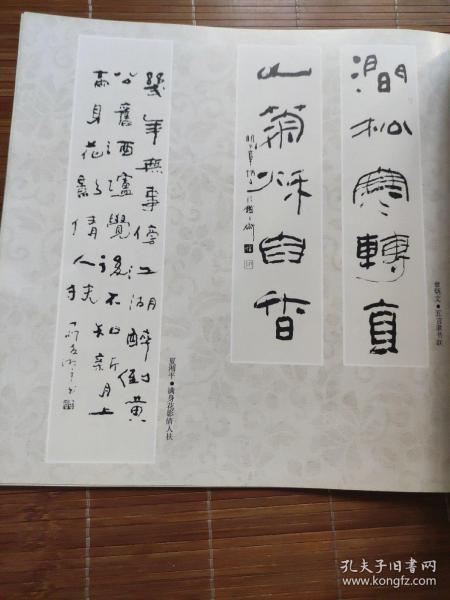 澗松寒轉直
山菊秋自香
五言隶书联
幾年無事傍江湖醉倒黄
公舊酒壚覺後不知新月上
滿身花影倩人扶
夏湘平●满身花影倩人扶
孔夫子旧书网
www.kongfz.com